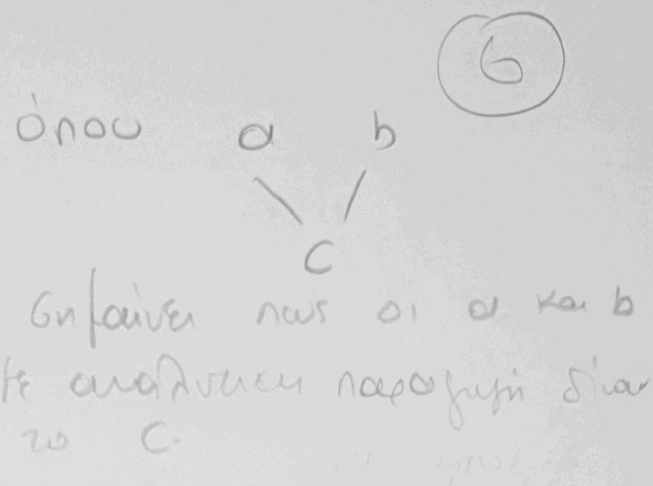 6
όπου a b
c
σημαίνει πως οι a και b
με αναλυτική παραγωγή δίνουν
το c.